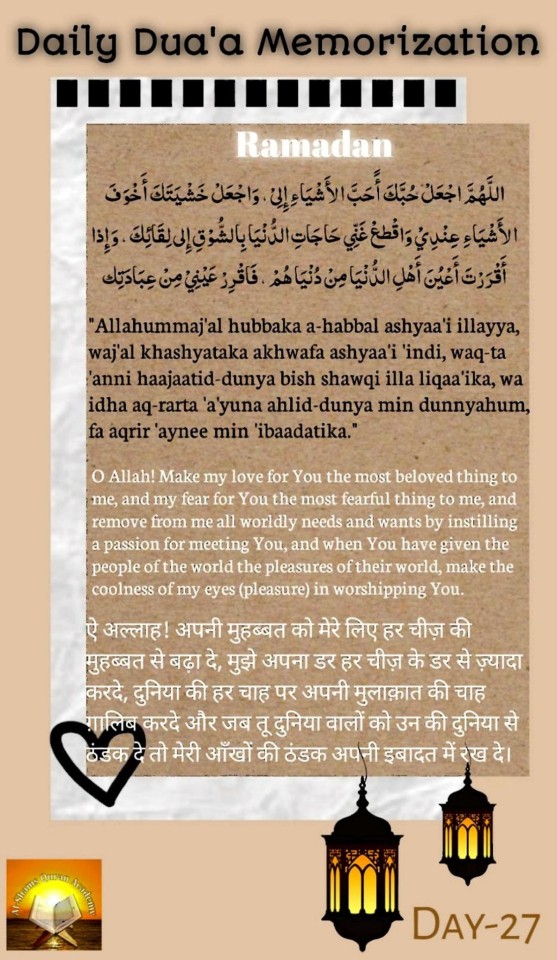 Daily Dua'a Memorization
Ramadan
اللَّهُمَّ اجْعَلْ حُبَّكَ أَحَبَّ الأَشْيَاءِ إِلَيَّ . وَاجْعَلْ خَشْيَتَكَ أَخْوَفَ
الأَشْيَاءِ عِنْدِيْ وَاقْطَعْ عَنِّي حَاجَاتِ الدُّنْيَا بِالشَّوْقِ إِلَى لِقَائِكَ . وَإِذَا
أَقْرَرْتَ أَعْيُنَ أَهْلِ الدُّنْيَا مِنْ دُنْيَاهُمْ . فَاقْرِرْ عَيْنِيْ مِنْ عِبَادَتِكَ
"Allahummaj'al hubbaka a-habbal ashyaa'i illayya,
waj'al khashyataka akhwafa ashyaa'i 'indi, waq-ta
'anni haajaatid-dunya bish shawqi illa liqaa'ika, wa
idha aq-rarta 'a'yuna ahlid-dunya min dunnyahum,
fa aqrir 'aynee min 'ibaadatika."
O Allah! Make my love for You the most beloved thing to
me, and my fear for You the most fearful thing to me, and
remove from me all worldly needs and wants by instilling
a passion for meeting You, and when You have given the
people of the world the pleasures of their world, make the
coolness of my eyes (pleasure) in worshipping You.
ऐ अल्लाह! अपनी मुहब्बत को मेरे लिए हर चीज़ की
मुहब्बत से बढ़ा दे, मुझे अपना डर हर चीज़ के डर से ज़्यादा
करदे, दुनिया की हर चाह पर अपनी मुलाक़ात की चाह
ग़ालिब करदे और जब तू दुनिया वालों को उन की दुनिया से
ठंडक दे तो मेरी आँखों की ठंडक अपनी इबादत में रख दे।
Al Shams Quran Academy
DAY-27